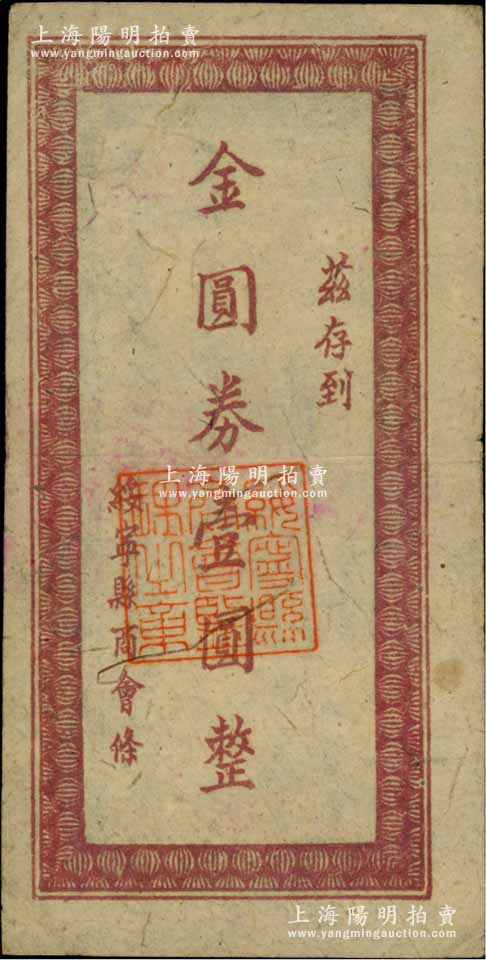 上海陽明拍賣
www.yangmingauction.com
茲存到
金圓券壹圓整
綏寧縣商會條
上海陽明拍賣
www.yangmingauction.com
上海陽明拍賣
www.yangmingauction.com